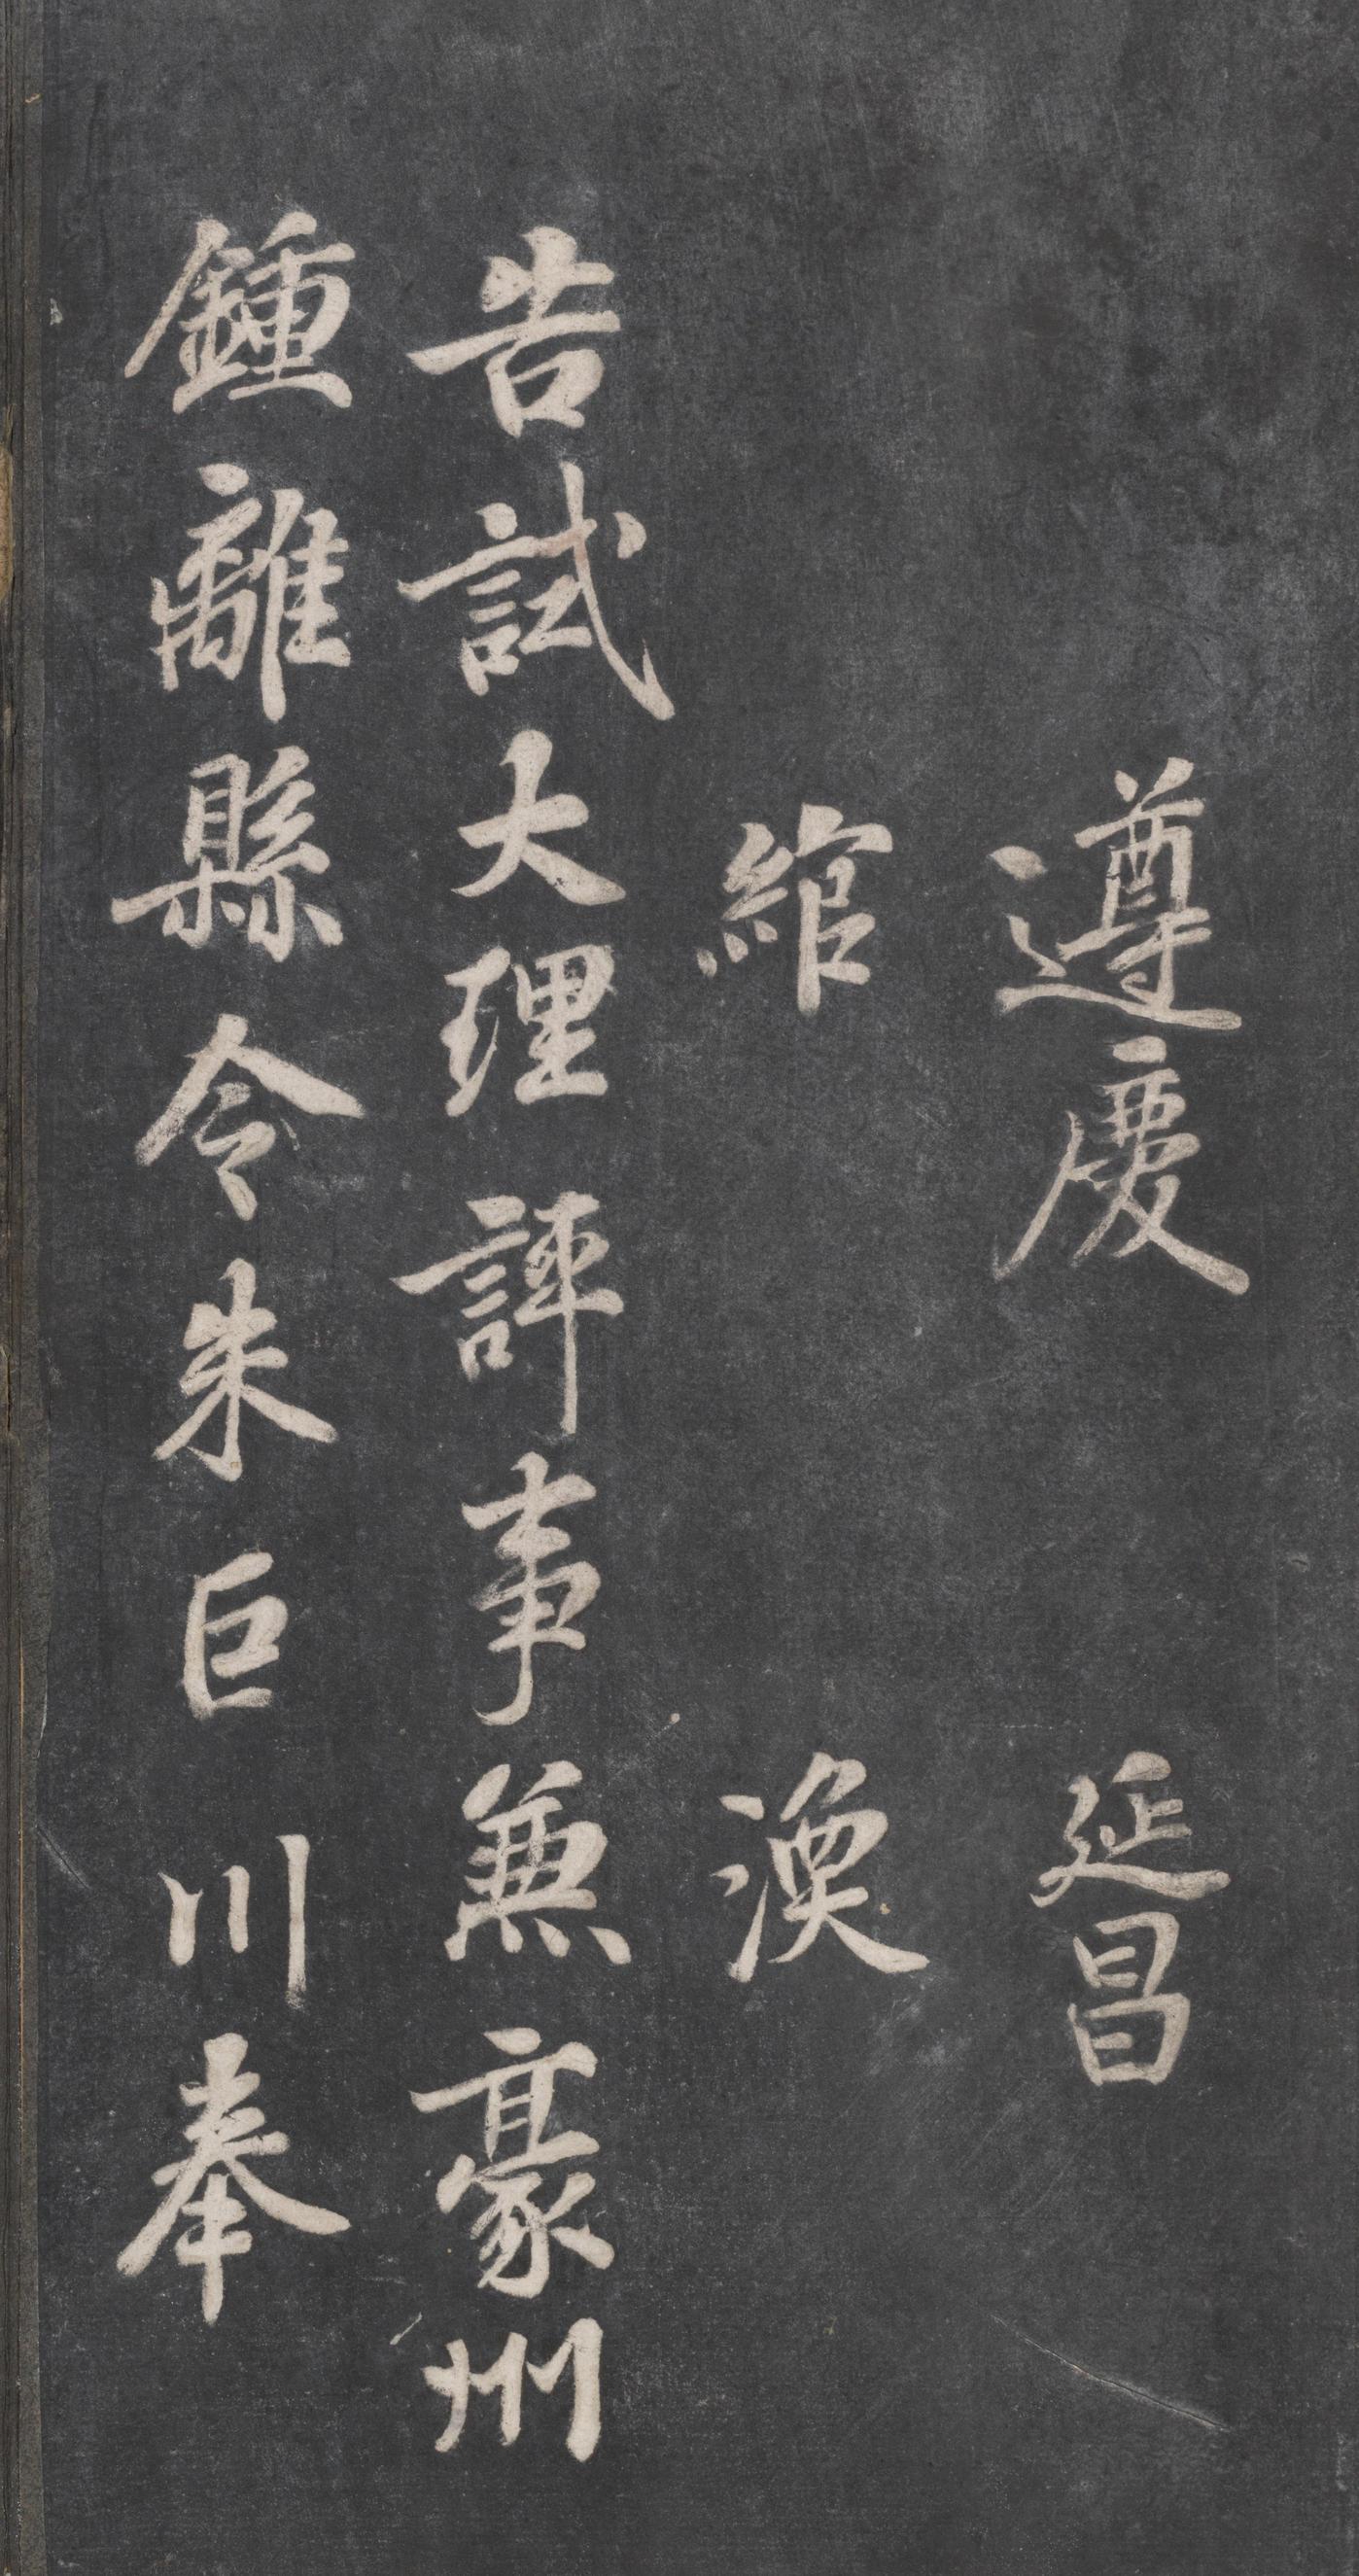 遵慶 延昌
綰 渙
告試大理評事兼豪州
鍾離縣令朱巨川奉